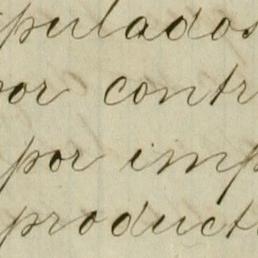 pulados
por contr
por imp
product